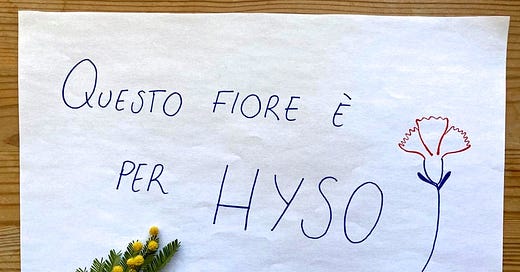 QUESTO FIORE È
PER HYSO